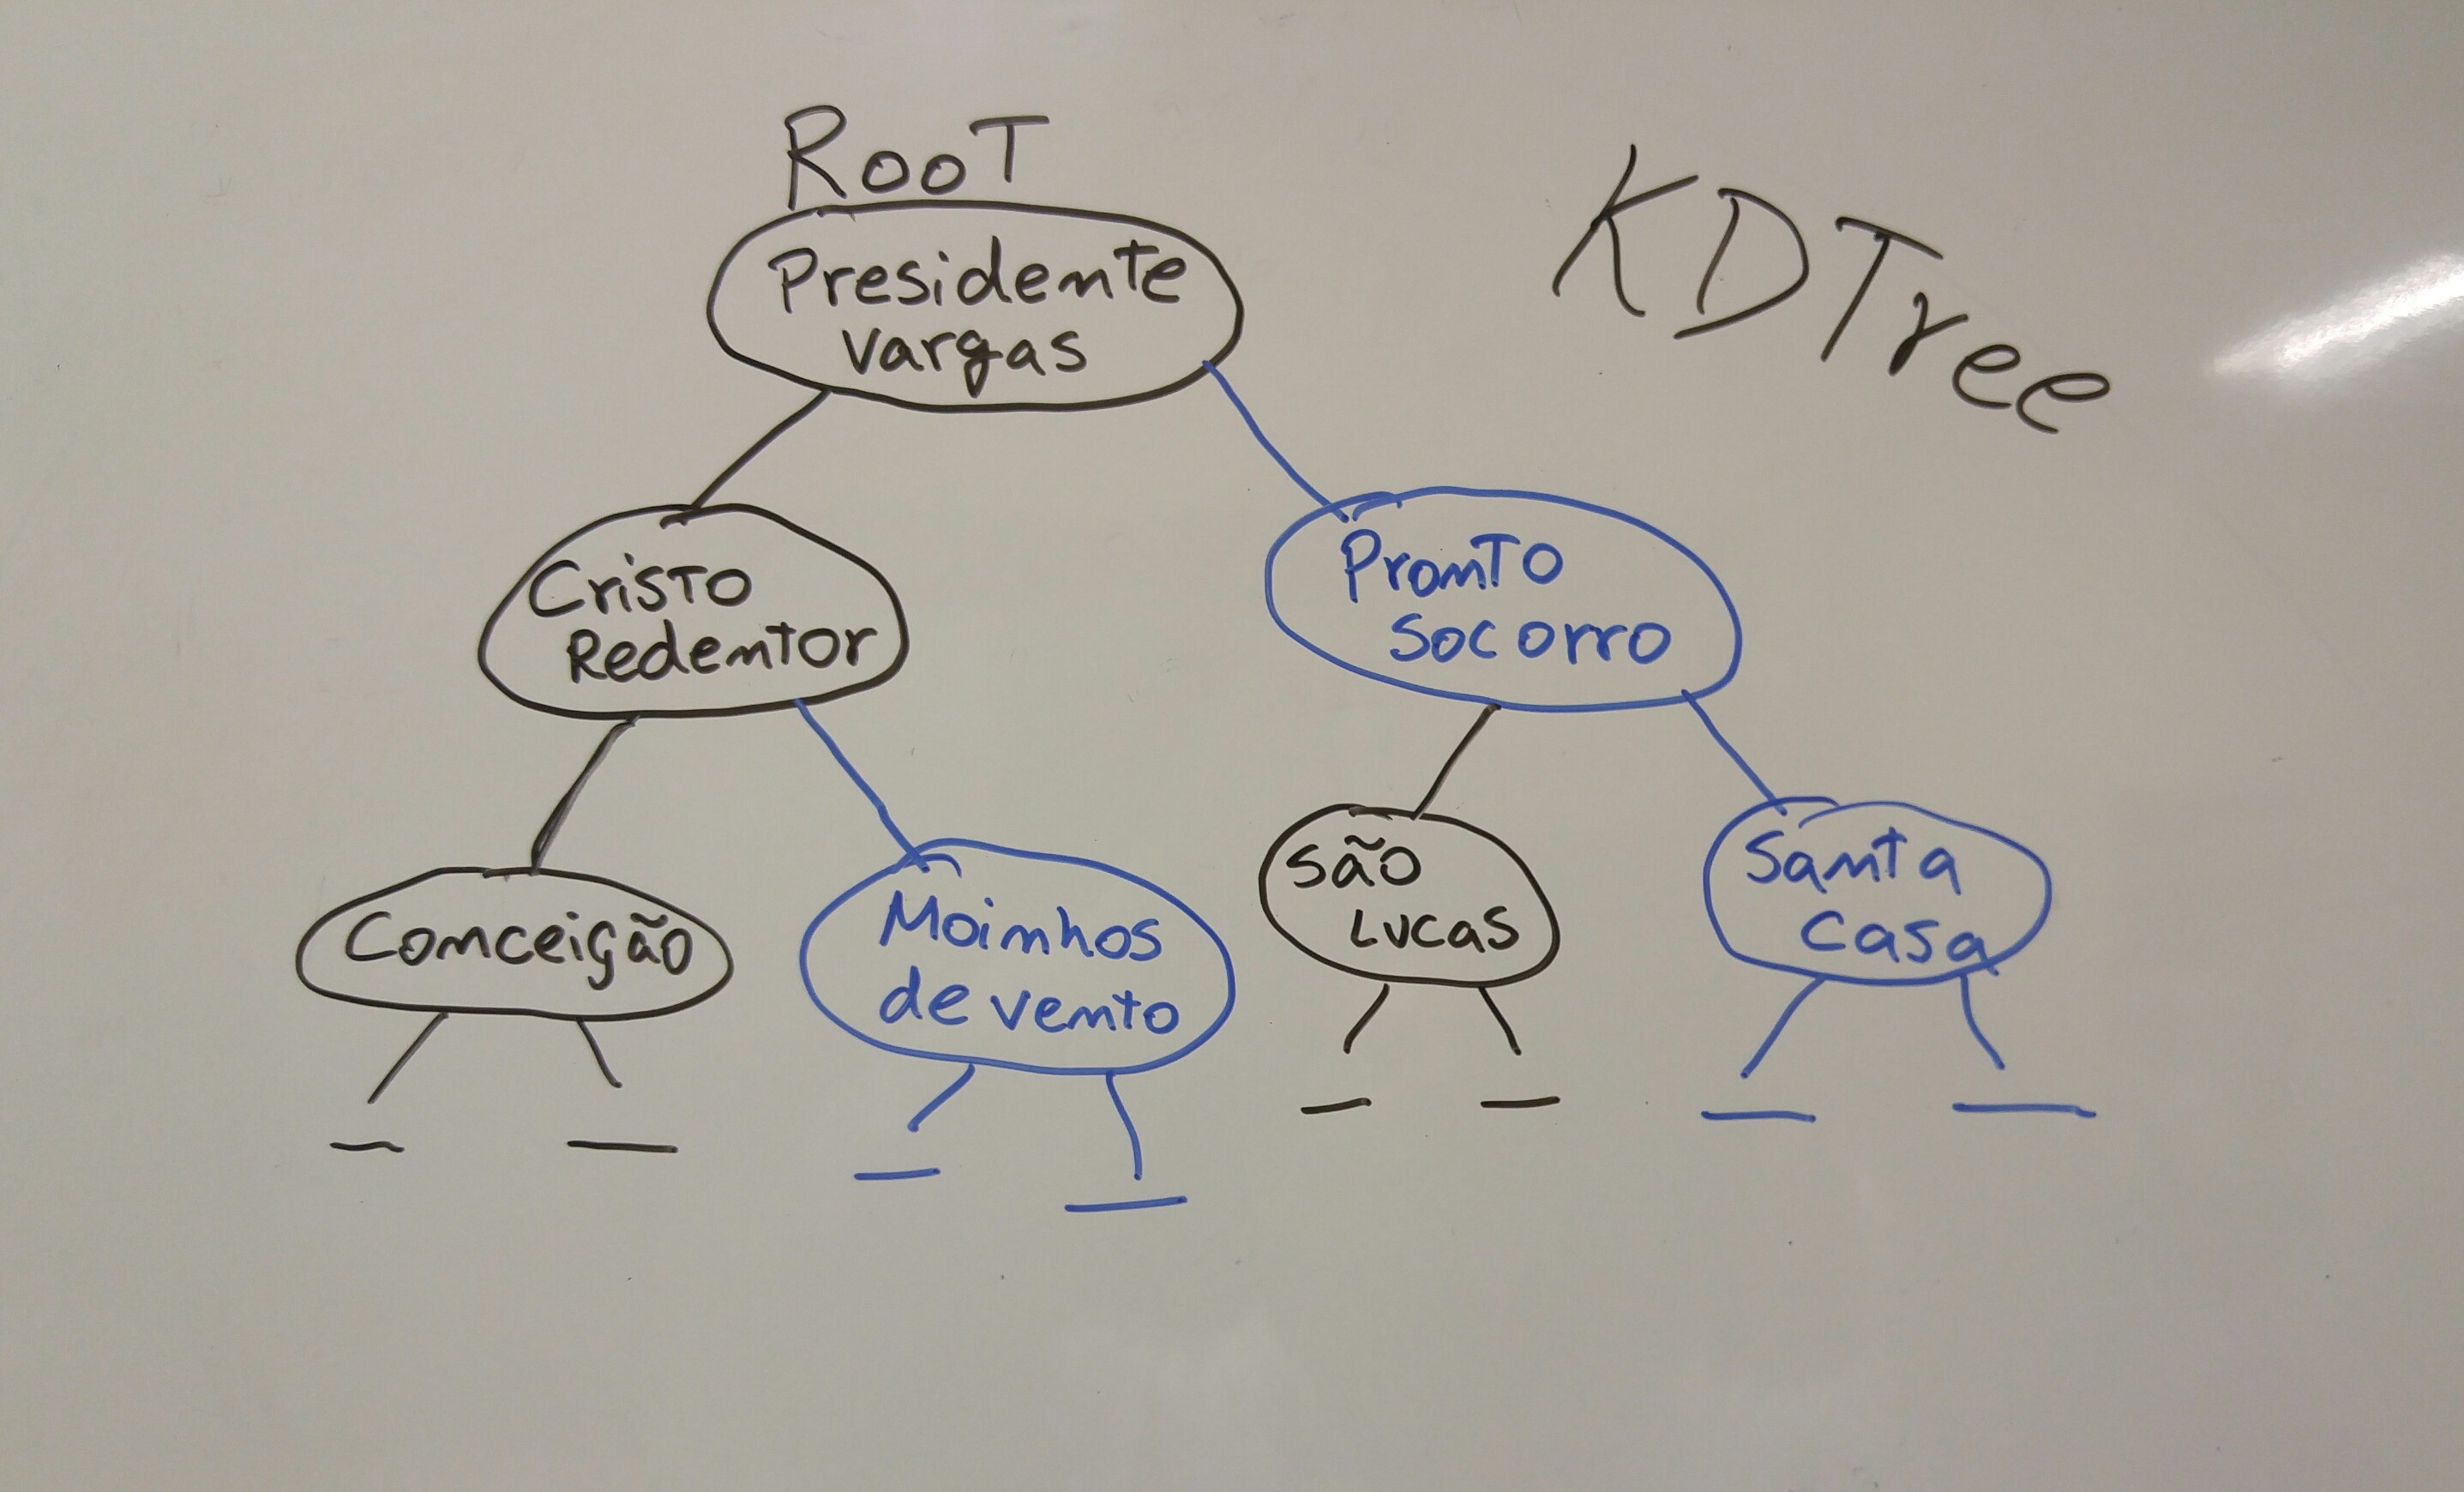 RooT
KDTree
Presidente
Vargas
Cristo
Redentor
Pronto
Socorro
Conceição
Moinhos
de vento
São
Lucas
Santa
Casa